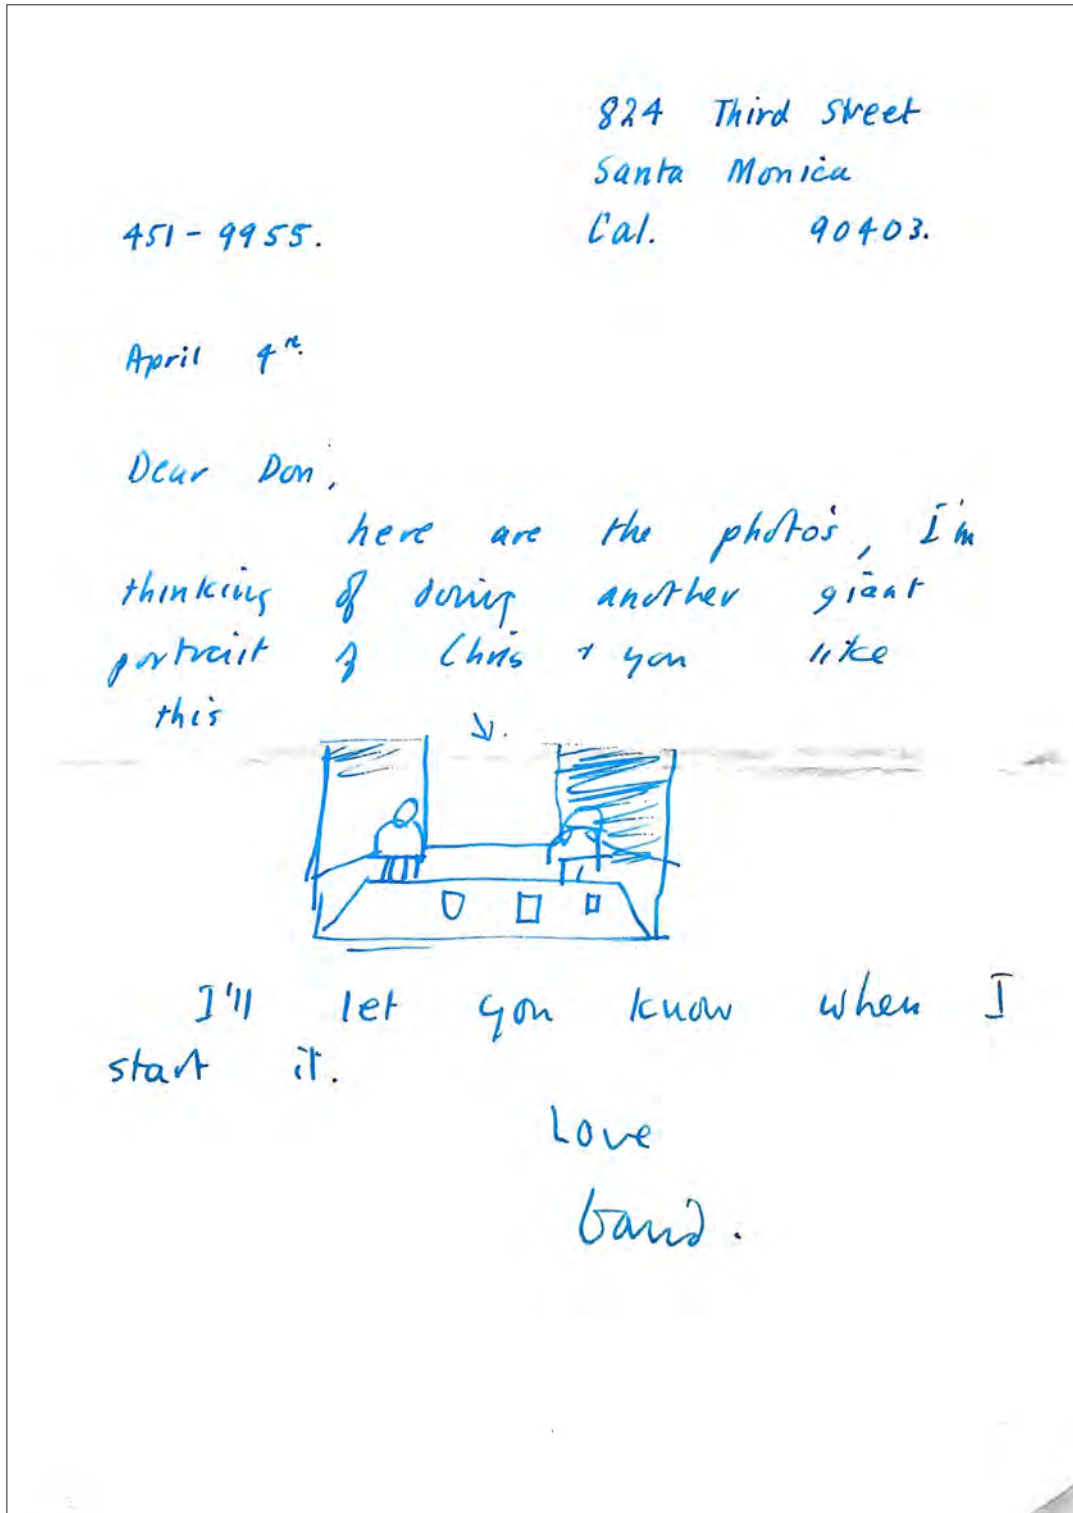 824 Third Street
Santa Monica
451-9955. Cal. 90403.
April 4th.
Dear Don,
here are the photo's, I'm
thinking of doing another giant
portrait of Chris + you like
this
I'll let you know when I
start it.
Love
David.